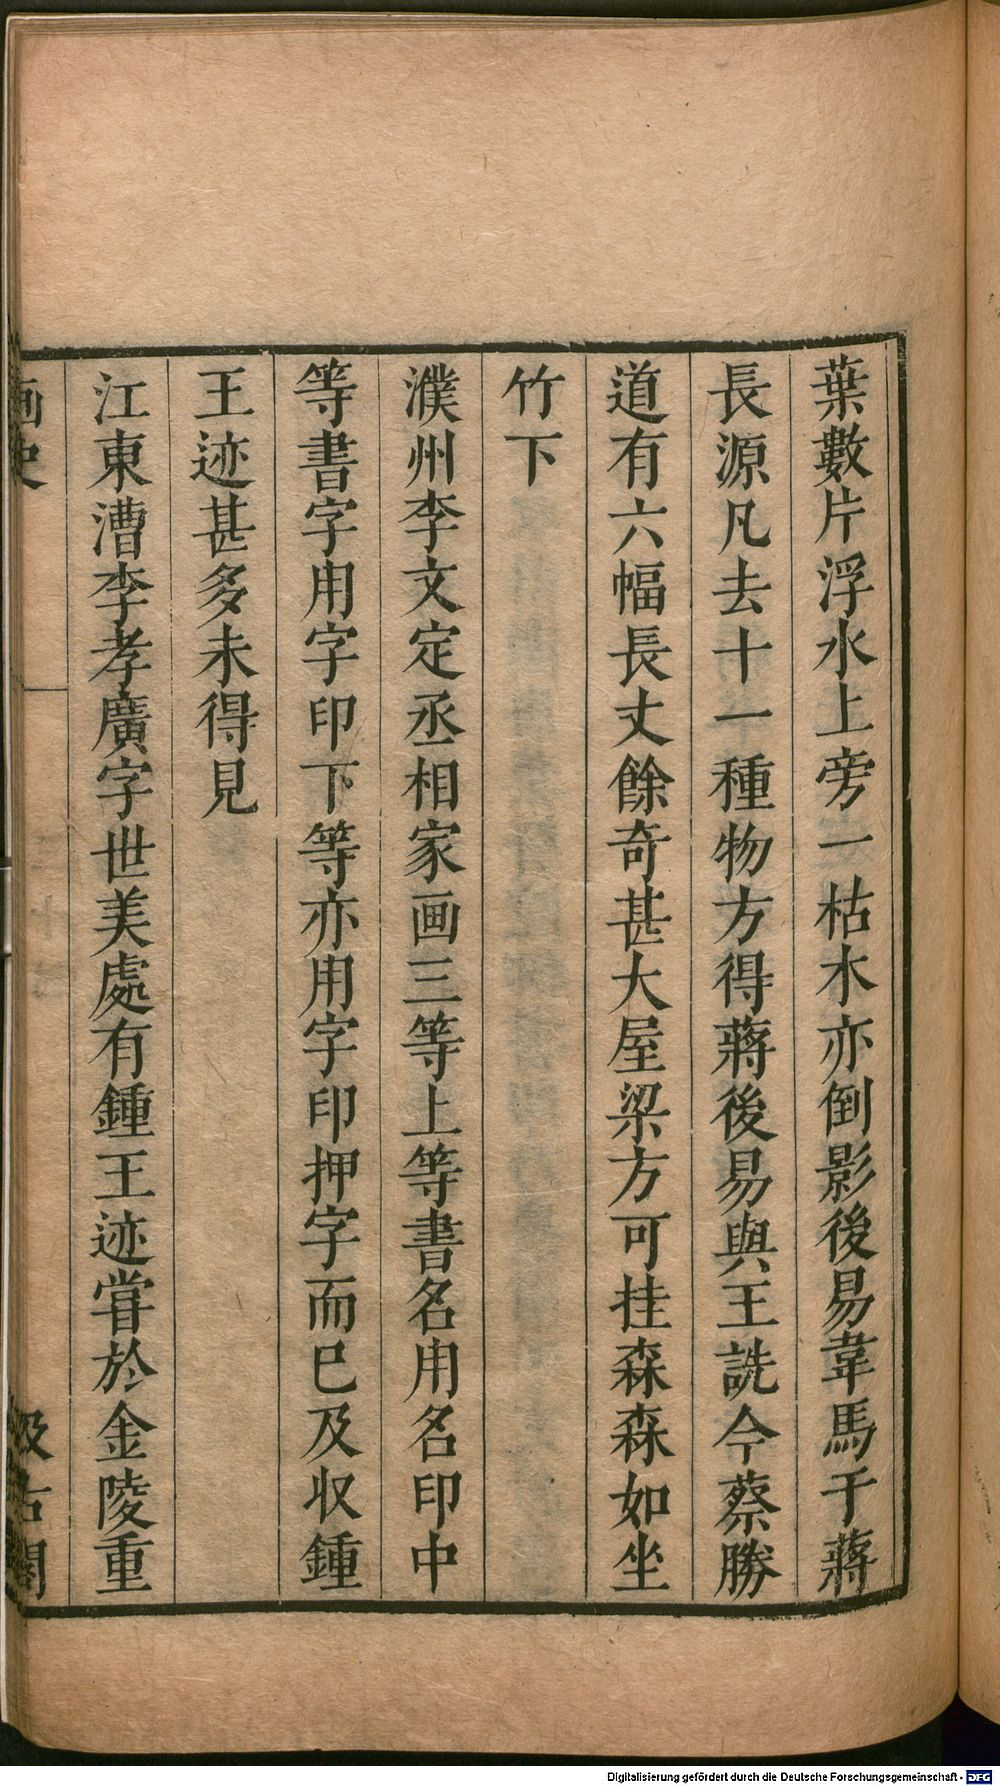 葉數片浮水上旁一枯木亦倒影後易韋馬于蔣
長源凡去十一種物方得蔣後易與王詵今蔡勝
道有六幅長丈餘奇甚大屋梁方可挂森森如坐
竹下
濮州李文定丞相家画三等上等書名用名印中
等書字用字印下等亦用字印押字而已及収鍾
王迹甚多未得見
江東漕李孝廣字世美處有鍾王迹甞於金陵重
画史
汲古閣
Digitalisierung gefördert durch die Deutsche Forschungsgemeinschaft - DFG